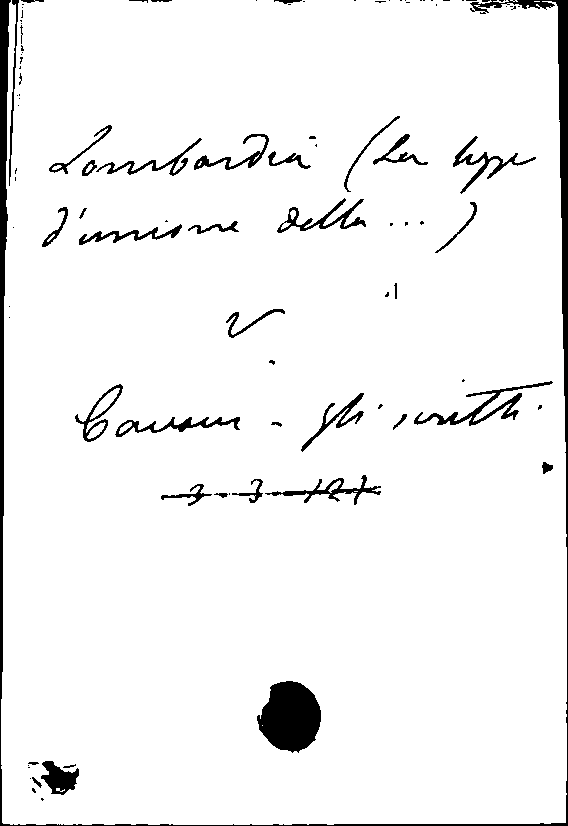 Lombardia (La legge
d'unione della ...)
V.
Cavour - gli scritti.
3-3-127